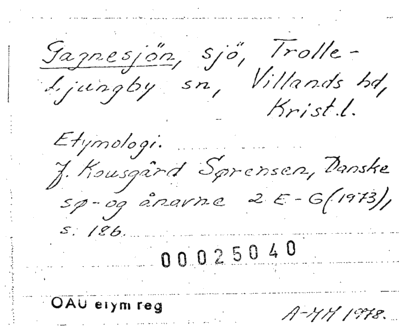 Gagnesjön, sjö, Trolle-
Ljungby sn, Villands hd,
Krist.l.
Etymologi.
J. Kousgård Sørensen, Danske
sø- og ånavne 2 E-G (1973),
s. 186.
00025040
OAU etym reg
A-MH 1978.